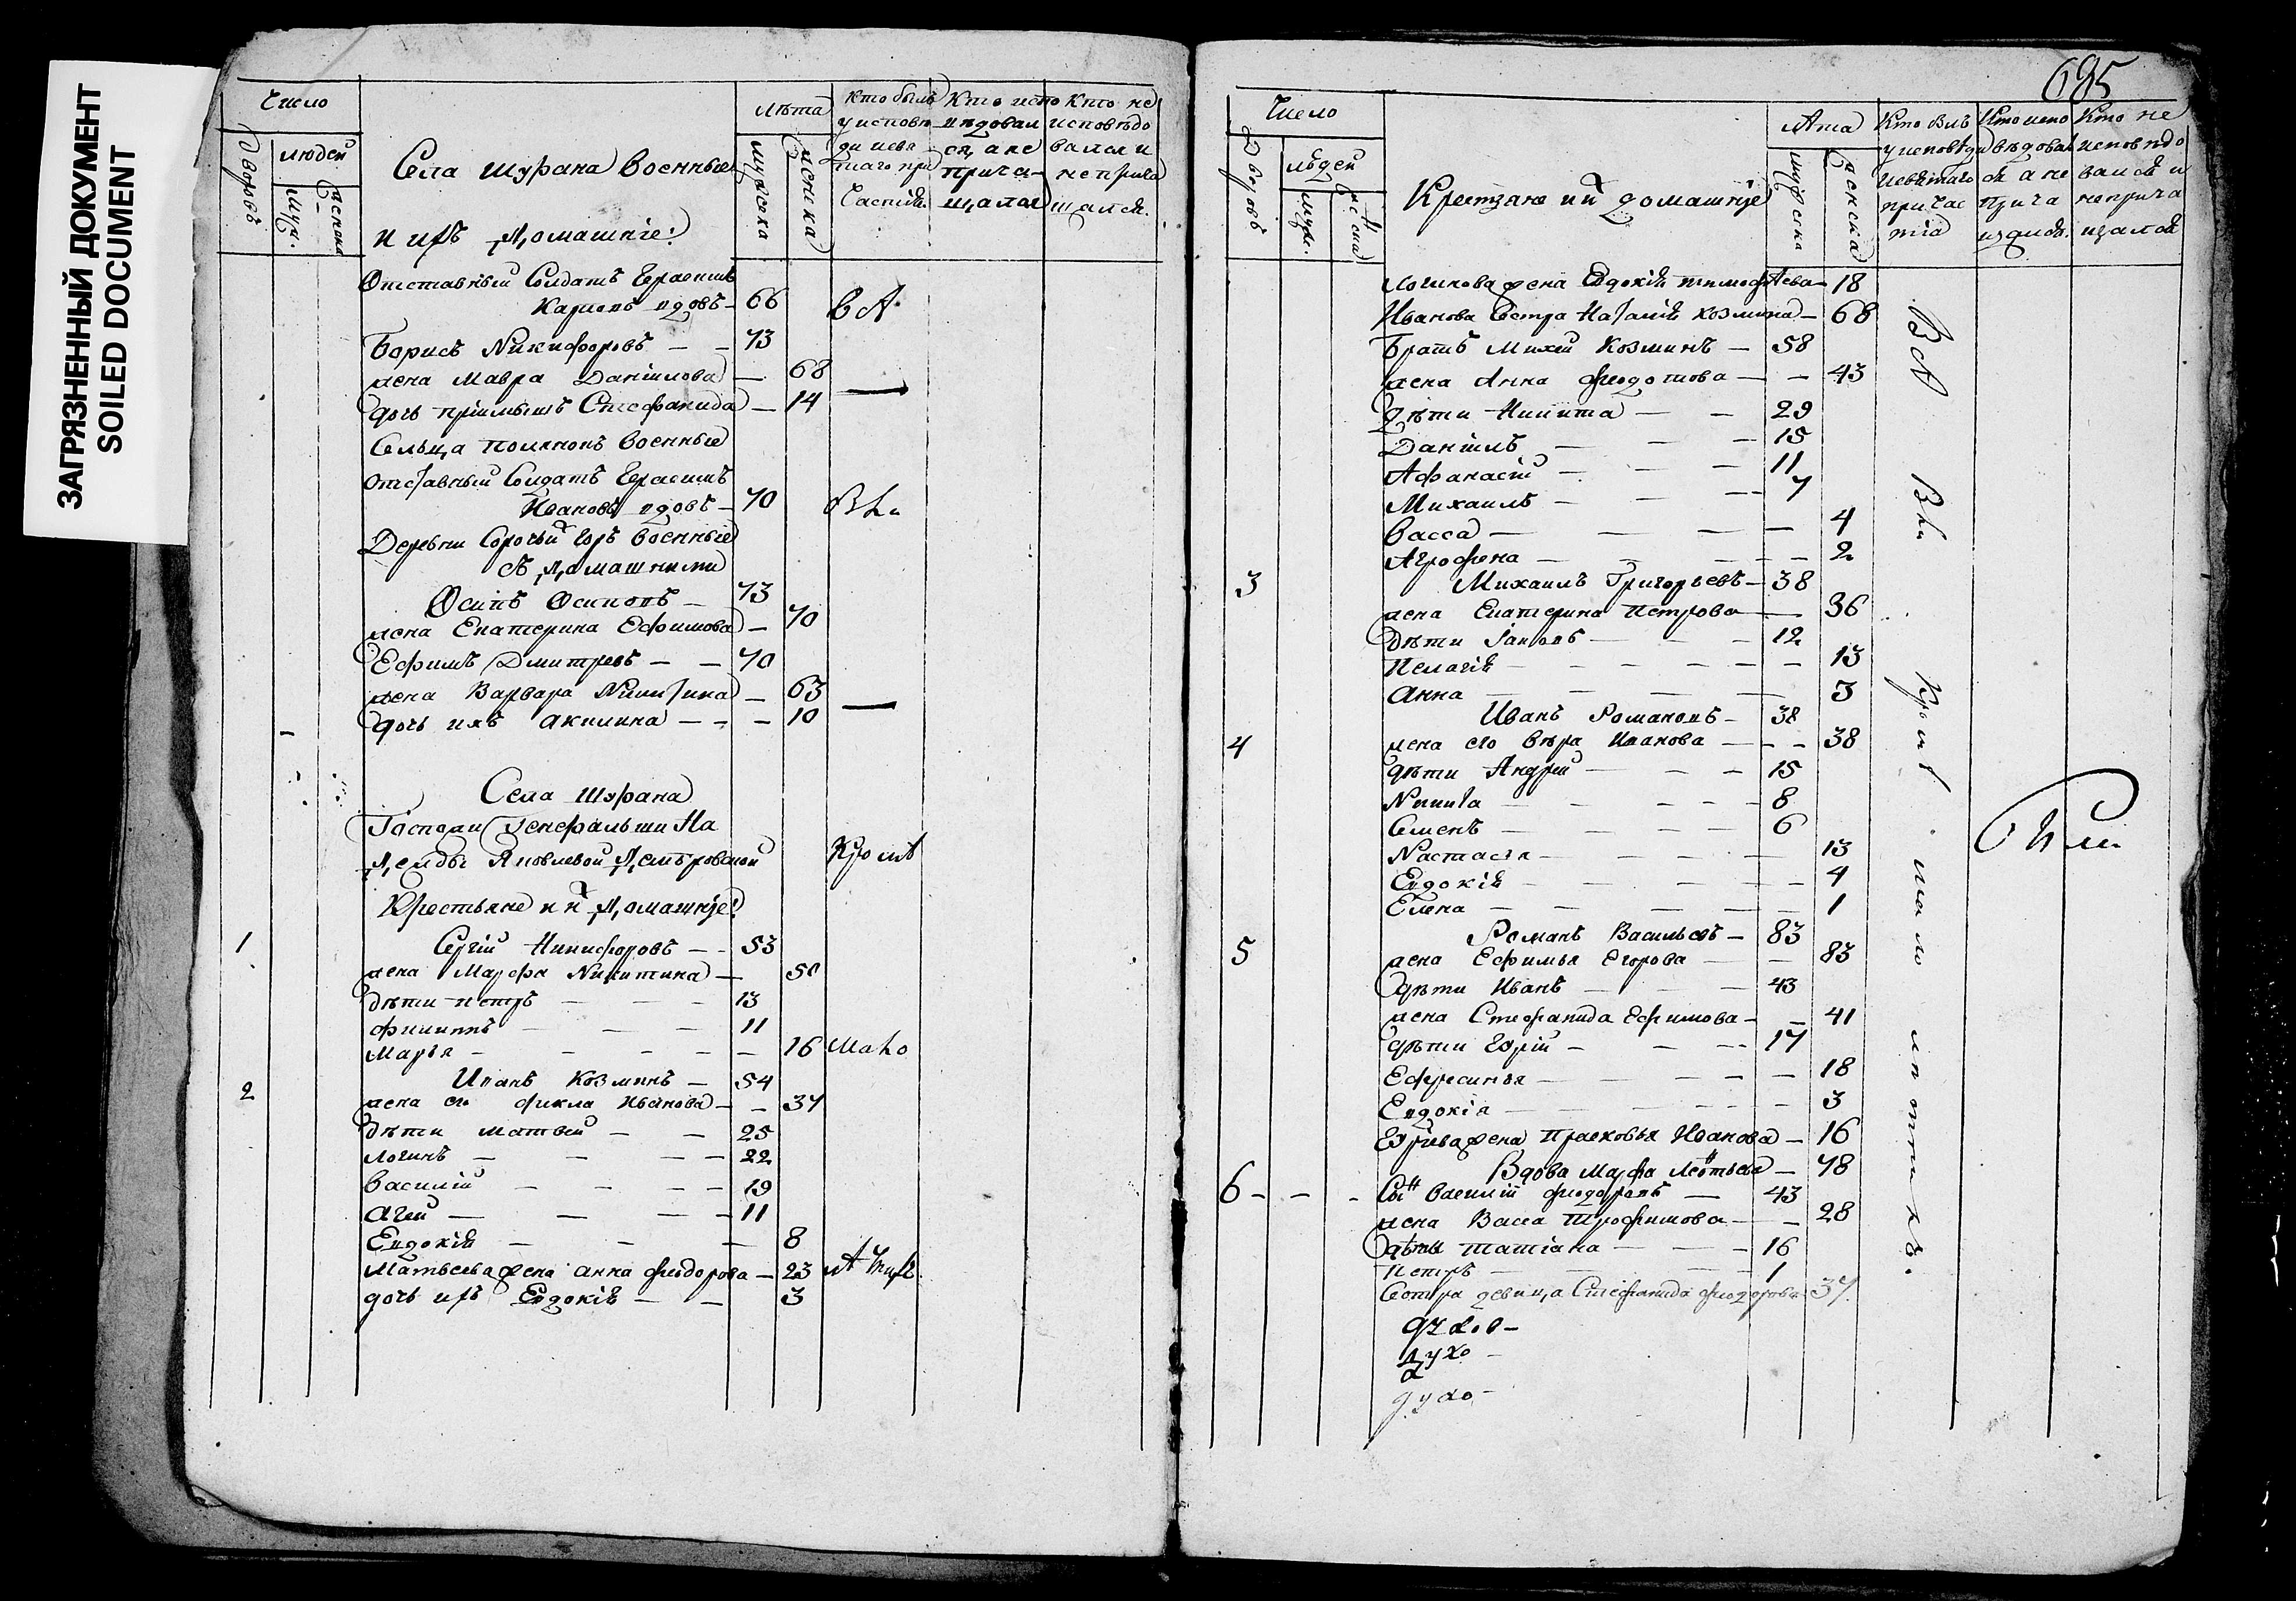 ЗАГРЯЗНЕННЫЙ ДОКУМЕНТ
SOILED DOCUMENT
Число
Дворовъ
людей
Муж.
женска
Села Шурана Военные
и ихъ Домашніе:
лѣта
мужеска
женска
Кто былъ у исповѣди и святаго при частія.
Кто испо вѣдовал ся, а не прича- щался
Кто не исповѣдо вался и не прича щался.
Отставный Солдатъ Герасимъ
Карповъ вдовъ — 66 вА
Борисъ Никифоровъ — — 73
жена Мавра Даніилова — 68
дочь пріимышъ Стефанида — 14 —
Сельца Полянокъ Военные
отставный Солдатъ Герасимъ
Ивановъ вдовъ — 70
Деревни Сорочьихъ горъ Военные
съ Домашними
Осипъ Осиповъ — 73
жена Екатерина Ефимова — 70
Ефимъ Дмитревъ — — 70
жена Варвара Никитина — 63
дочь ихъ Акилина — — — 10 —
Села Шурана
Господи Генеральши На
Яковлевой
Кромѣ
Крестьяне и их Домашніе:
1 Сергій Никифоровъ — — 53
жена Марфа Никитина — 50
дѣти Петръ — — — 13
Филиппъ — — — 11
Марья — — — — — 16 мало
2 Иванъ Козминъ — 54
жена ево Фекла Иванова — — 37
дѣти Матвей — — 25
Логинъ — — — — 22
Василий — — — — 19
Агей — — — — 11
Евдокія — — — 8
Матвеева жена Анна Феодорова — 23
дочь ихъ Евдокія — — 3
685
Число
Дворовъ
людей
Муж.
женска
Крестьяне и их домашніе
Лѣта
мужеска
женска
Кто былъ у исповѣди и святаго причас тія
Кто испо вѣдовал ся а не прича щался.
Кто не исповѣдо вался и не прича щался
Логинова жена Евдокія Тимофѣева — 18
Иванова Сестра Наталія Козмина — 68
Братъ Михей Козминъ — 58
жена Анна Феодотова — — 43
дѣти Никита — — 29
Даніилъ — — — 15
Афанасій — — — 11
Михаилъ — — — 7
Васса — — — — 4
Агрофена — — — — 2
3 Михаилъ Григорьевъ — 38
жена Екатерина Петрова — 36
дѣти Іаковъ — — — 12
Пелагія — — — — — 13
Анна — — — — 3
Иванъ Романовъ — 38
4 жена его Вѣра Иванова — — — 38
дѣти Андрей — — — 15
Никита — — — — 8
Семенъ — — — — 6
Настасья — — — — 13
Евдокія — — — — — 4
Елена — — — — — 1
5 Романъ Васильевъ — 83
жена Ефимья Егорова — — 83
дѣти Иванъ — — — 43
жена Стефанида Ефимова — — 41
дѣти Юрій — — — 17
Ефросинья — — — — — 18
Евдокія — — — — — 3
Юрьева жена Прасковья Иванова — 16
Вдова Марфа Леонтьева — 78
6 — — — Сынъ Василій Феодоровъ — 43
жена Васса Трофимова — — 28
дѣти Татіана — — — 16
Петръ — — — 1
Сестра девица Стефанида Феодорова — 37
Кромѣ
духо